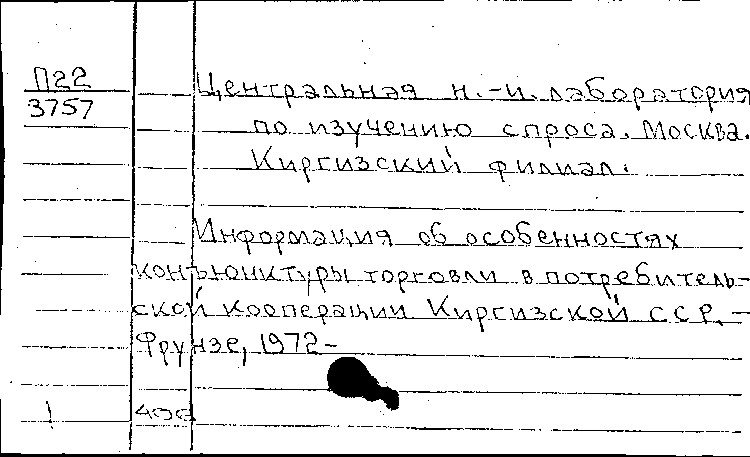 П22
3757
Центральная н.-и. лаборатория
по изучению спроса. Москва.
Киргизский филиал.
Информация об особенностях
конъюнктуры торговли в потребитель-
ской кооперации Киргизской ССР. –
Фрунзе, 1972 –